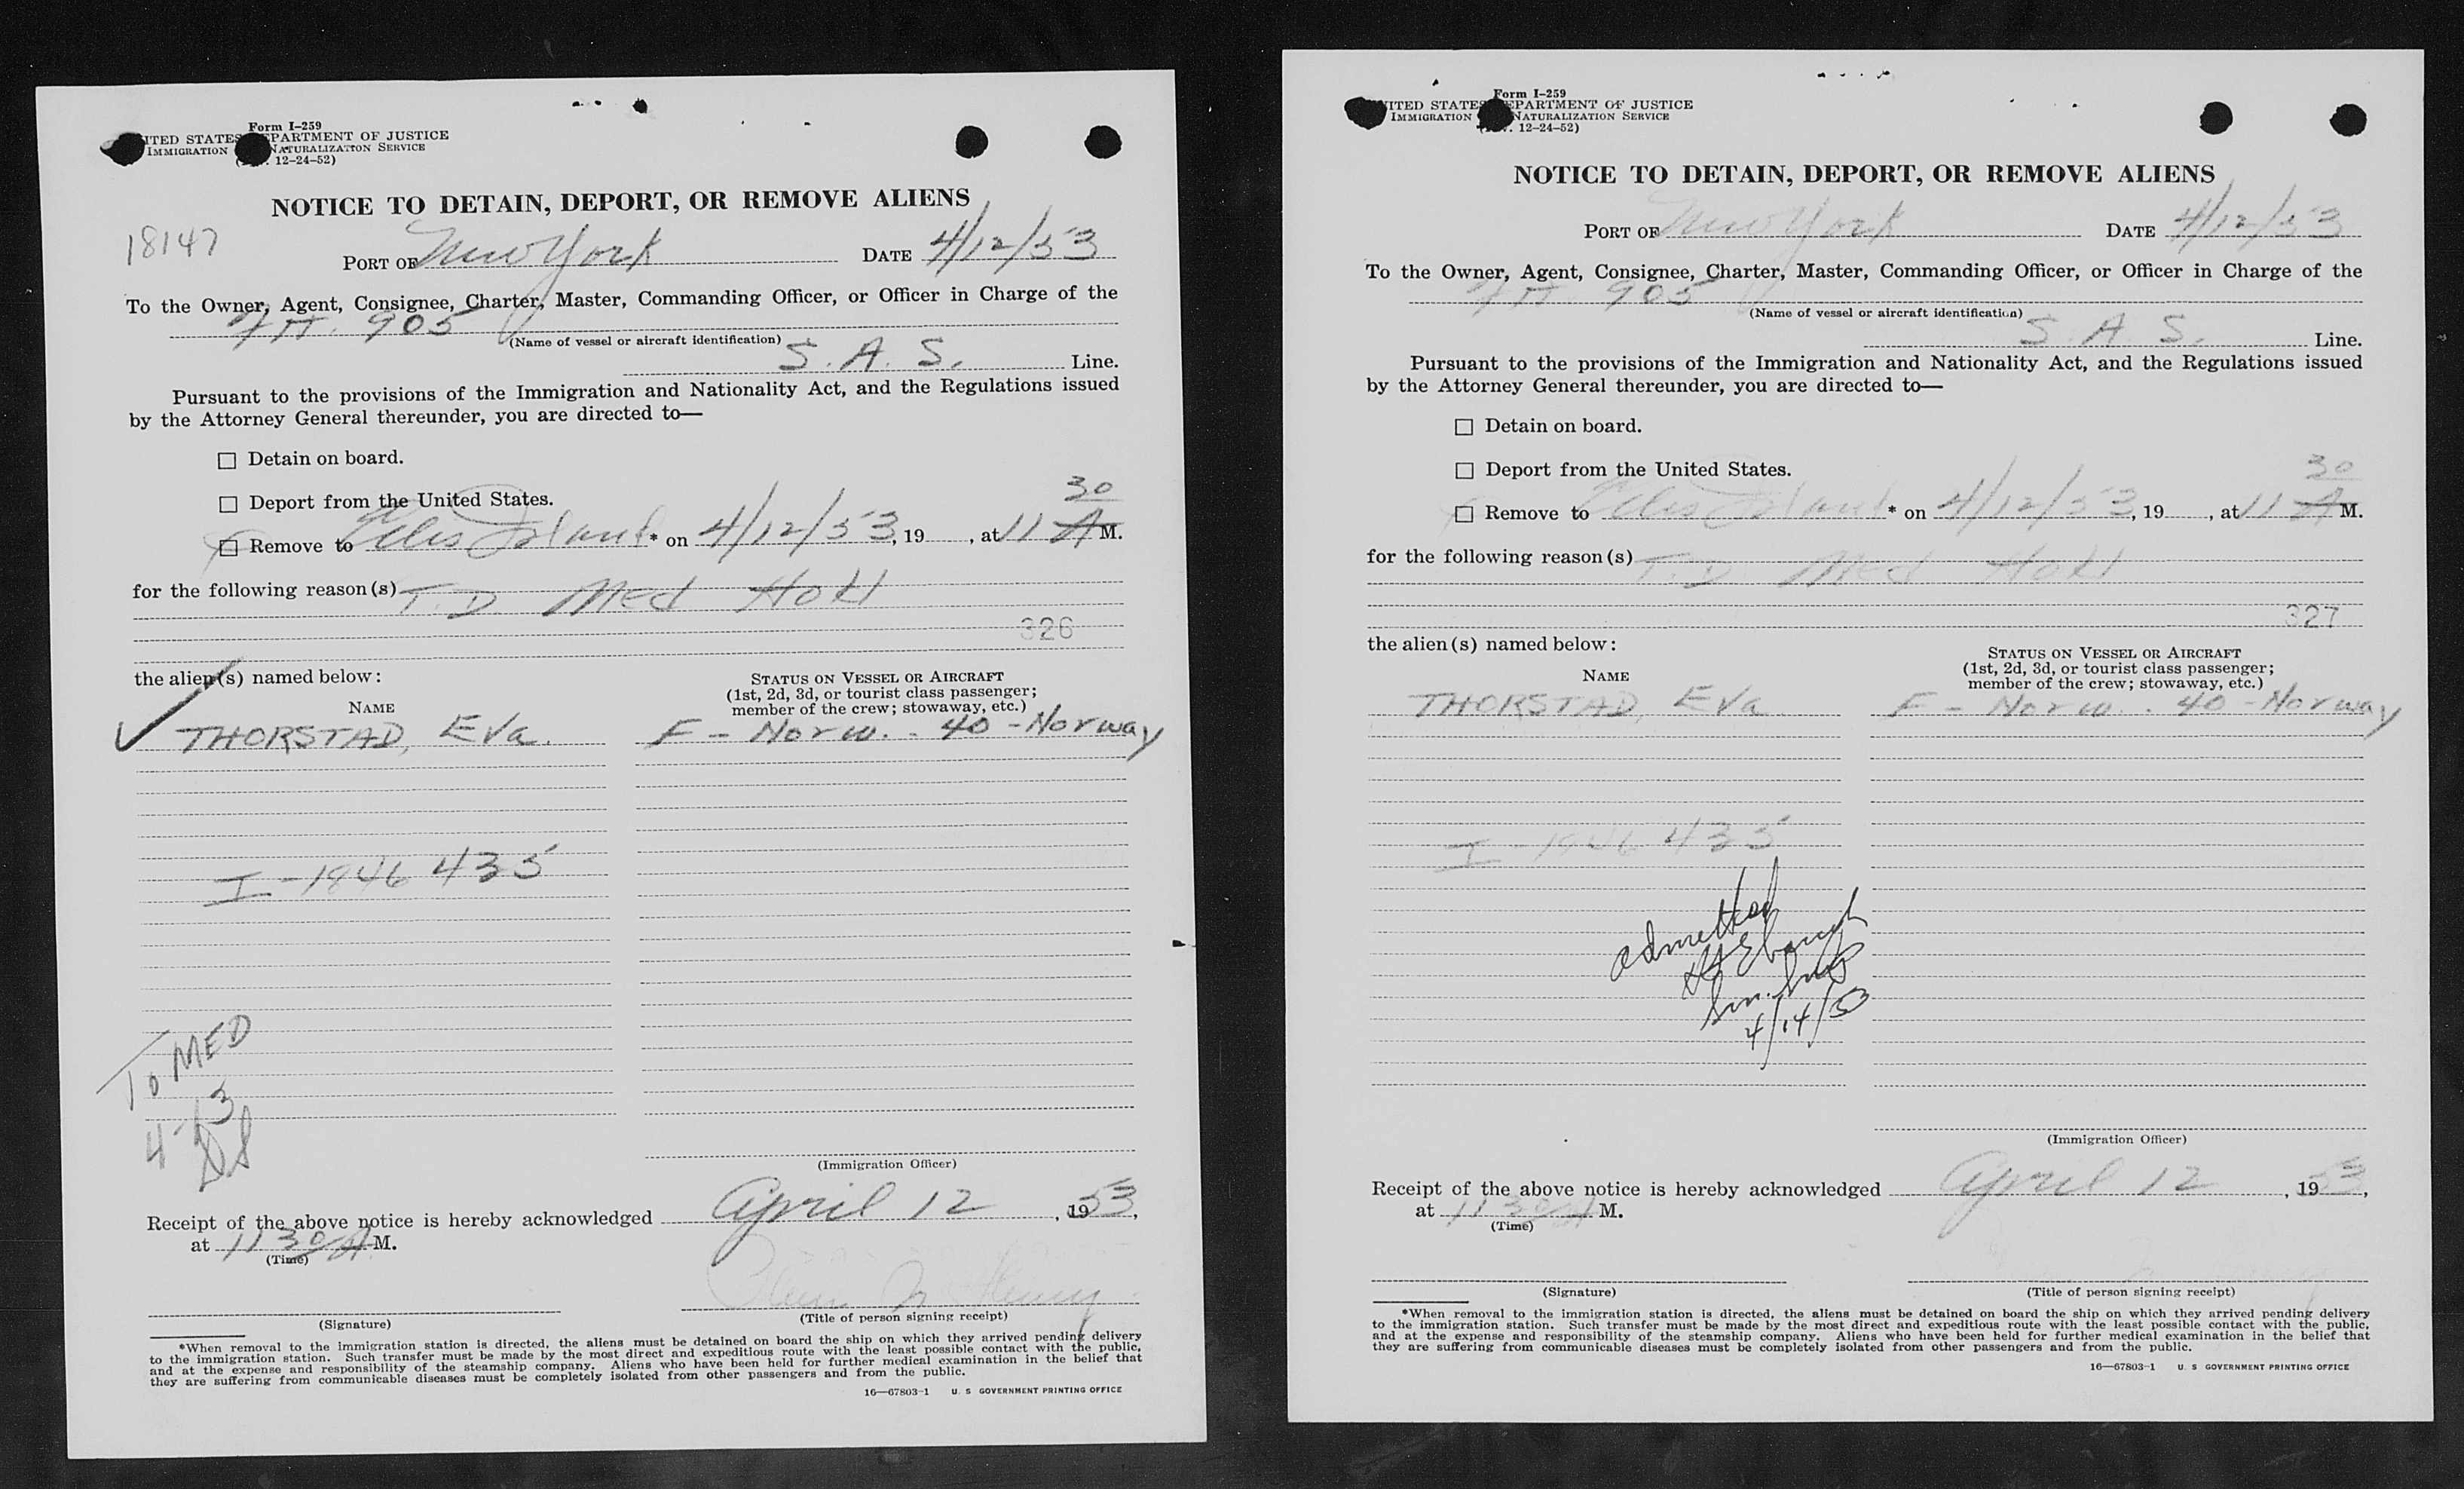 Form I-259
ITED STATES EPARTMENT OF JUSTICE
IMMIGRATION NATURALIZATION SERVICE
12-24-52)
NOTICE TO DETAIN, DEPORT, OR REMOVE ALIENS
18147
PORT OF New York DATE 4/12/53
To the Owner, Agent, Consignee, Charter, Master, Commanding Officer, or Officer in Charge of the
905
(Name of vessel or aircraft identification)
S. A. S. Line.
Pursuant to the provisions of the Immigration and Nationality Act, and the Regulations issued
by the Attorney General thereunder, you are directed to—
☐ Detain on board.
☐ Deport from the United States.
☐ Remove to Ellis Island * on 4/12/53, 19 , at 11 30 A M.
for the following reason(s) T. D Med Hold
326
the alien(s) named below:
NAME
STATUS ON VESSEL OR AIRCRAFT
(1st, 2d, 3d, or tourist class passenger;
member of the crew; stowaway, etc.)
THORSTAD, Eva. F - Norw. - 40 - Norway
I-1846 435
To MED
4-13
(Immigration Officer)
Receipt of the above notice is hereby acknowledged April 12, 1953,
at 11 30 A M.
(Time)
(Signature)
(Title of person signing receipt)
*When removal to the immigration station is directed, the aliens must be detained on board the ship on which they arrived pending delivery
to the immigration station. Such transfer must be made by the most direct and expeditious route with the least possible contact with the public,
and at the expense and responsibility of the steamship company. Aliens who have been held for further medical examination in the belief that
they are suffering from communicable diseases must be completely isolated from other passengers and from the public.
16—67803-1 U. S GOVERNMENT PRINTING OFFICE
Form I-259
ITED STATES EPARTMENT OF JUSTICE
IMMIGRATION NATURALIZATION SERVICE
12-24-52)
NOTICE TO DETAIN, DEPORT, OR REMOVE ALIENS
PORT OF New York DATE 4/12/53
To the Owner, Agent, Consignee, Charter, Master, Commanding Officer, or Officer in Charge of the
905
(Name of vessel or aircraft identification)
S. A. S. Line.
Pursuant to the provisions of the Immigration and Nationality Act, and the Regulations issued
by the Attorney General thereunder, you are directed to—
☐ Detain on board.
☐ Deport from the United States.
☐ Remove to Ellis Island * on 4/12/53, 19 , at 11 30 A M.
for the following reason(s) T. D Med Hold
327
the alien(s) named below:
NAME
STATUS ON VESSEL OR AIRCRAFT
(1st, 2d, 3d, or tourist class passenger;
member of the crew; stowaway, etc.)
THORSTAD, Eva F - Norw. - 40 - Norway
I-1846 435
admitted
4/14/53
(Immigration Officer)
Receipt of the above notice is hereby acknowledged April 12, 1953,
at 11 30 A M.
(Time)
(Signature)
(Title of person signing receipt)
*When removal to the immigration station is directed, the aliens must be detained on board the ship on which they arrived pending delivery
to the immigration station. Such transfer must be made by the most direct and expeditious route with the least possible contact with the public,
and at the expense and responsibility of the steamship company. Aliens who have been held for further medical examination in the belief that
they are suffering from communicable diseases must be completely isolated from other passengers and from the public.
16—67803-1 U. S GOVERNMENT PRINTING OFFICE